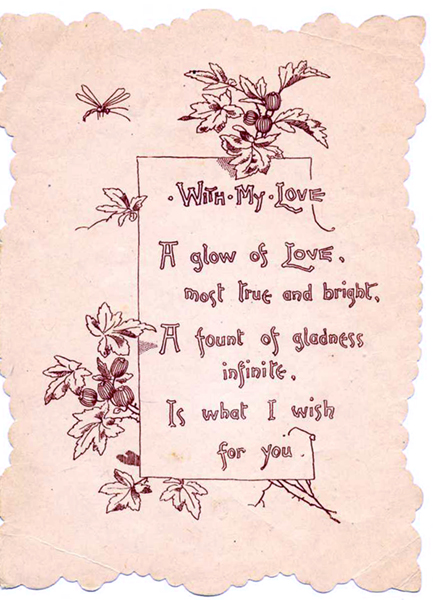 · With · My · Love
A glow of Love,
most true and bright,
A fount of gladness
infinite,
Is what I wish
for you.